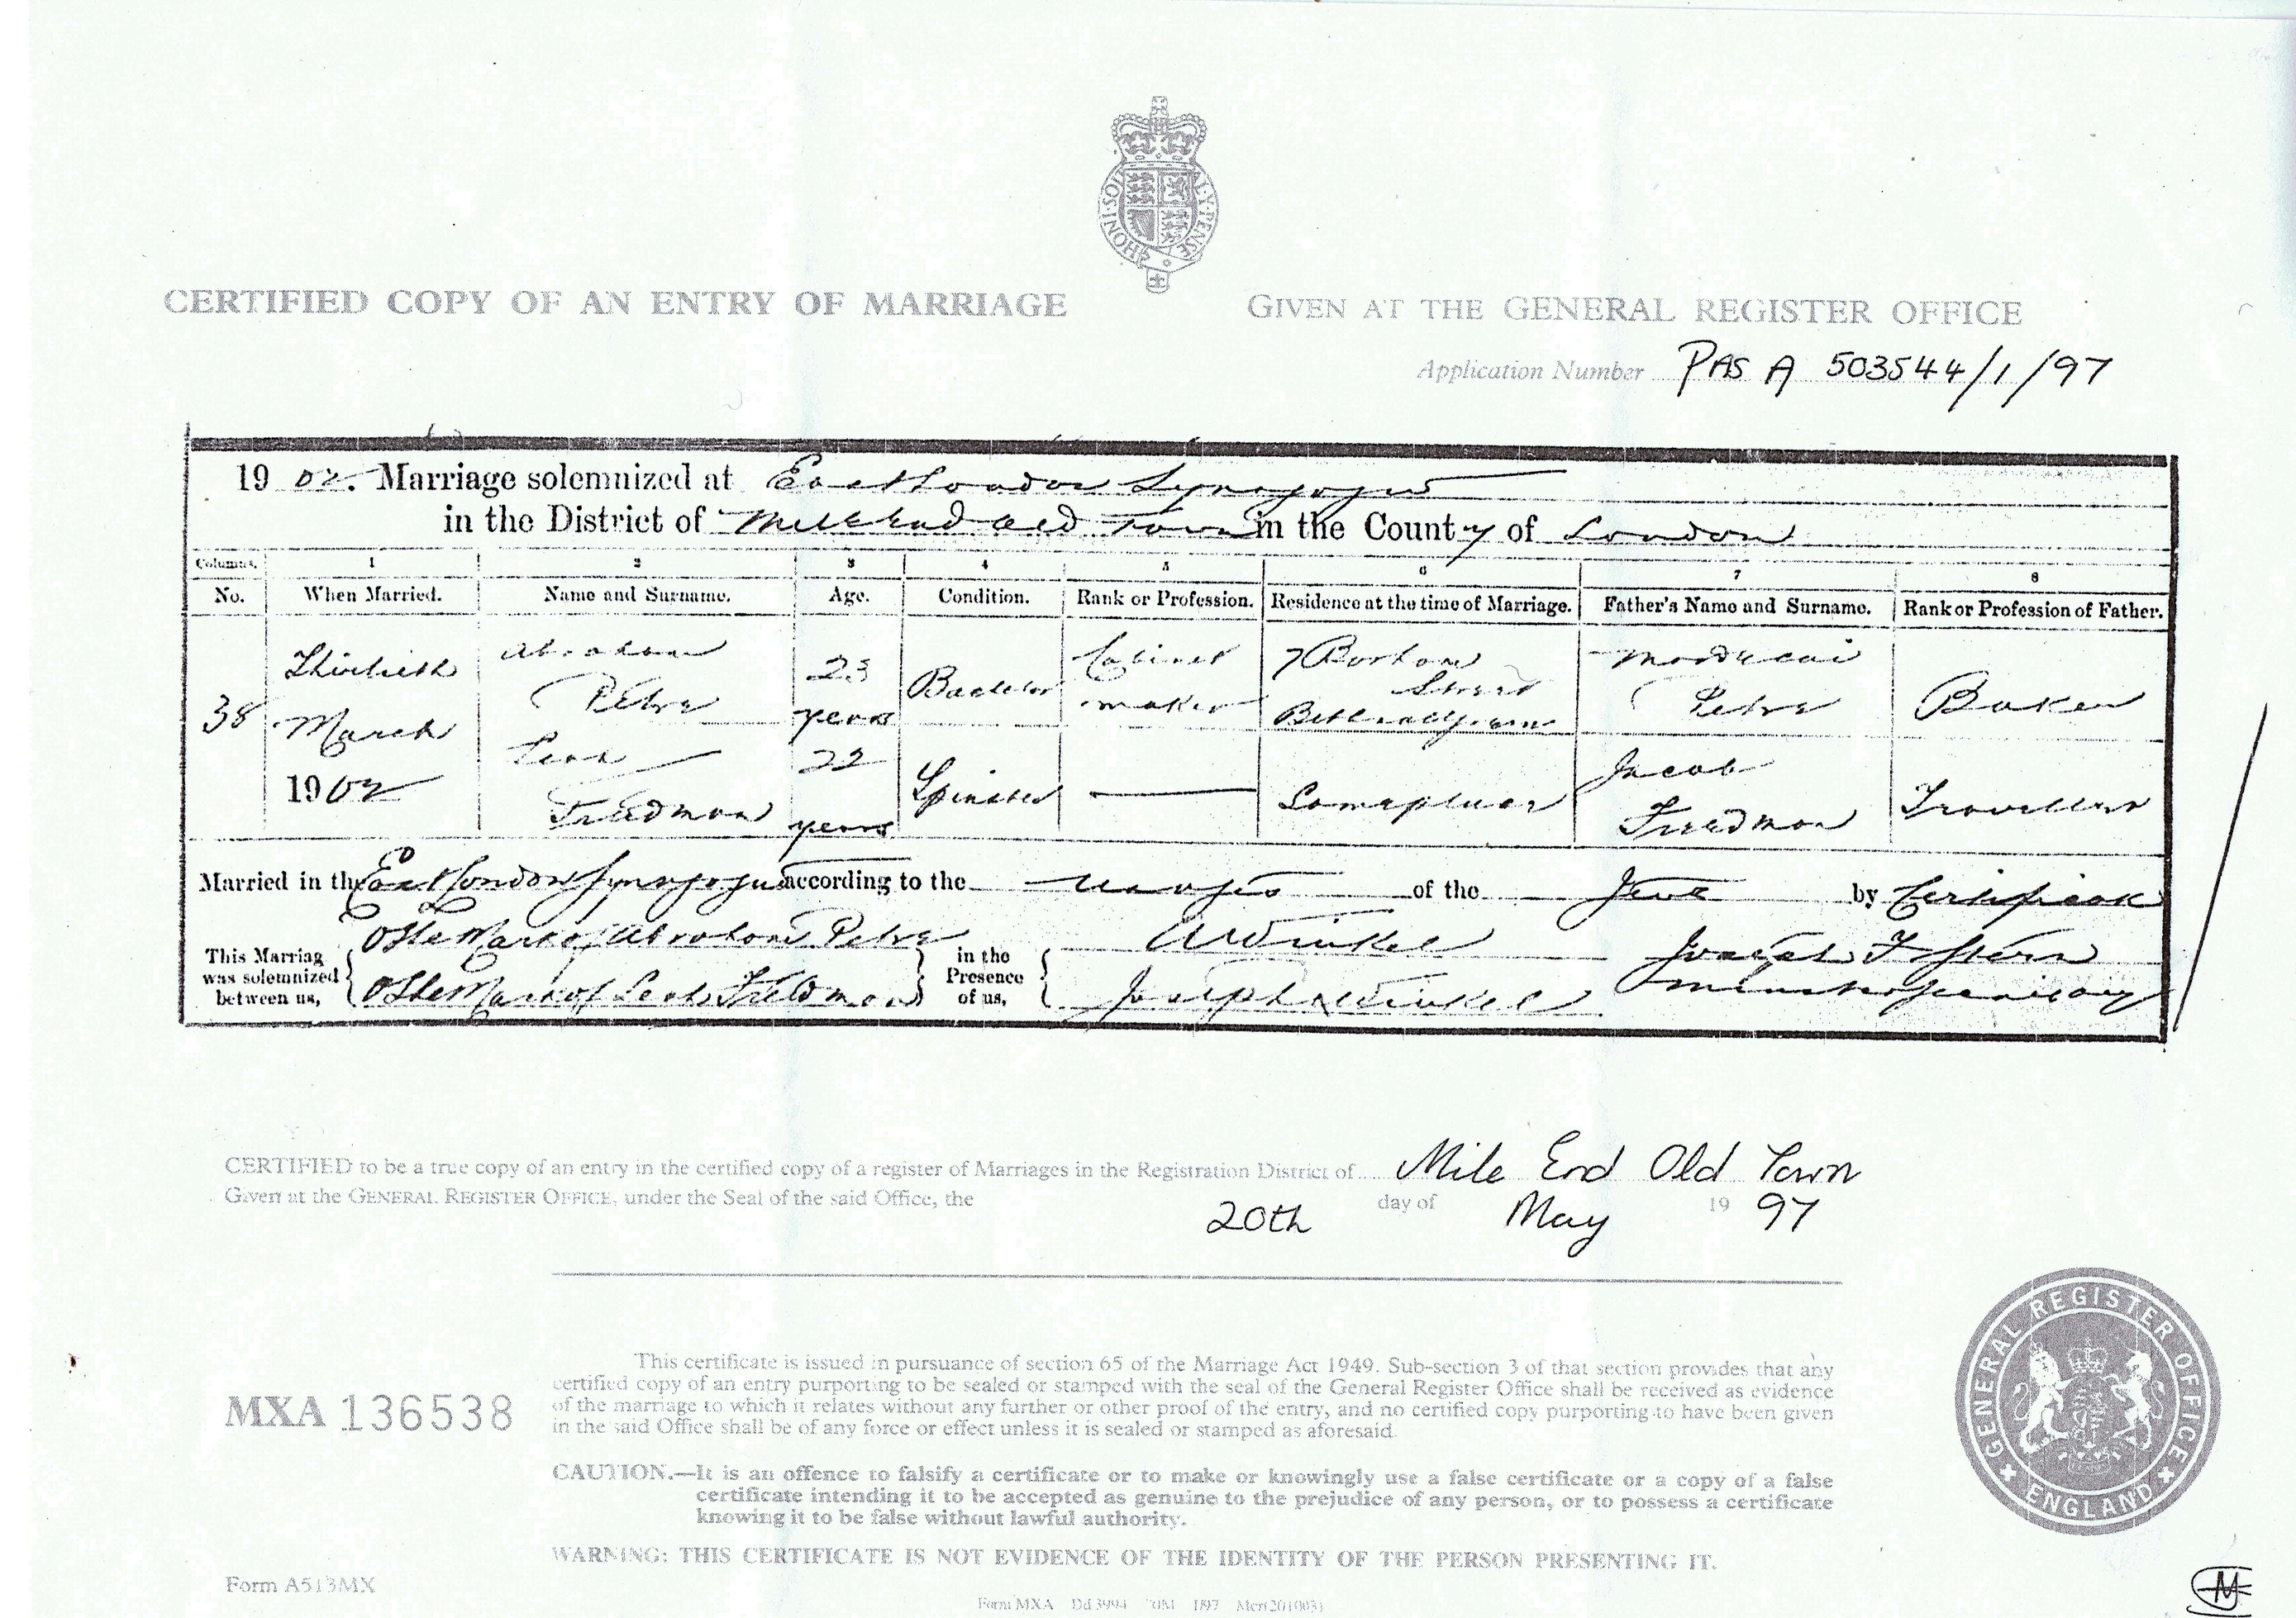 HONI SOI
Y PENSE
CERTIFIED COPY OF AN ENTRY OF MARRIAGE
GIVEN AT THE GENERAL REGISTER OFFICE
Application Number PAS A 503544/1/97
1902. Marriage solemnized at East London Synagogue
in the District of Mile End Old Town in the County of London
Columns. 1 2 3 4 5 6 7 8
No. When Married. Name and Surname. Age. Condition. Rank or Profession. Residence at the time of Marriage. Father's Name and Surname. Rank or Profession of Father.
38 Thirtieth March 1902
Abraham Petre 23 years Bachelor Cabinet maker 7 Street Bethnal Green Mordecai Petre Baker
Leah Friedman 22 years Spinster — Same place Jacob Friedman Traveller
Married in the East London Synagogue according to the usages of the Jews by Certificate
This Marriag was solemnized between us,
O The Mark of Abraham Petre
O The Mark of Leah Friedman
in the Presence of us,
A Winkel
Joseph Winkel
Joseph F Stern
Minister Secretary
CERTIFIED to be a true copy of an entry in the certified copy of a register of Marriages in the Registration District of Mile End Old Town
Given at the GENERAL REGISTER OFFICE, under the Seal of the said Office, the 20th day of May 19 97
MXA 136538
This certificate is issued in pursuance of section 65 of the Marriage Act 1949. Sub-section 3 of that section provides that any
certified copy of an entry purporting to be sealed or stamped with the seal of the General Register Office shall be received as evidence
of the marriage to which it relates without any further or other proof of the entry, and no certified copy purporting to have been given
in the said Office shall be of any force or effect unless it is sealed or stamped as aforesaid.
CAUTION.—It is an offence to falsify a certificate or to make or knowingly use a false certificate or a copy of a false
certificate intending it to be accepted as genuine to the prejudice of any person, or to possess a certificate
knowing it to be false without lawful authority.
WARNING: THIS CERTIFICATE IS NOT EVIDENCE OF THE IDENTITY OF THE PERSON PRESENTING IT.
GENERAL REGISTER OFFICE
ENGLAND
Form A513MX
Form MXA Dd 3994